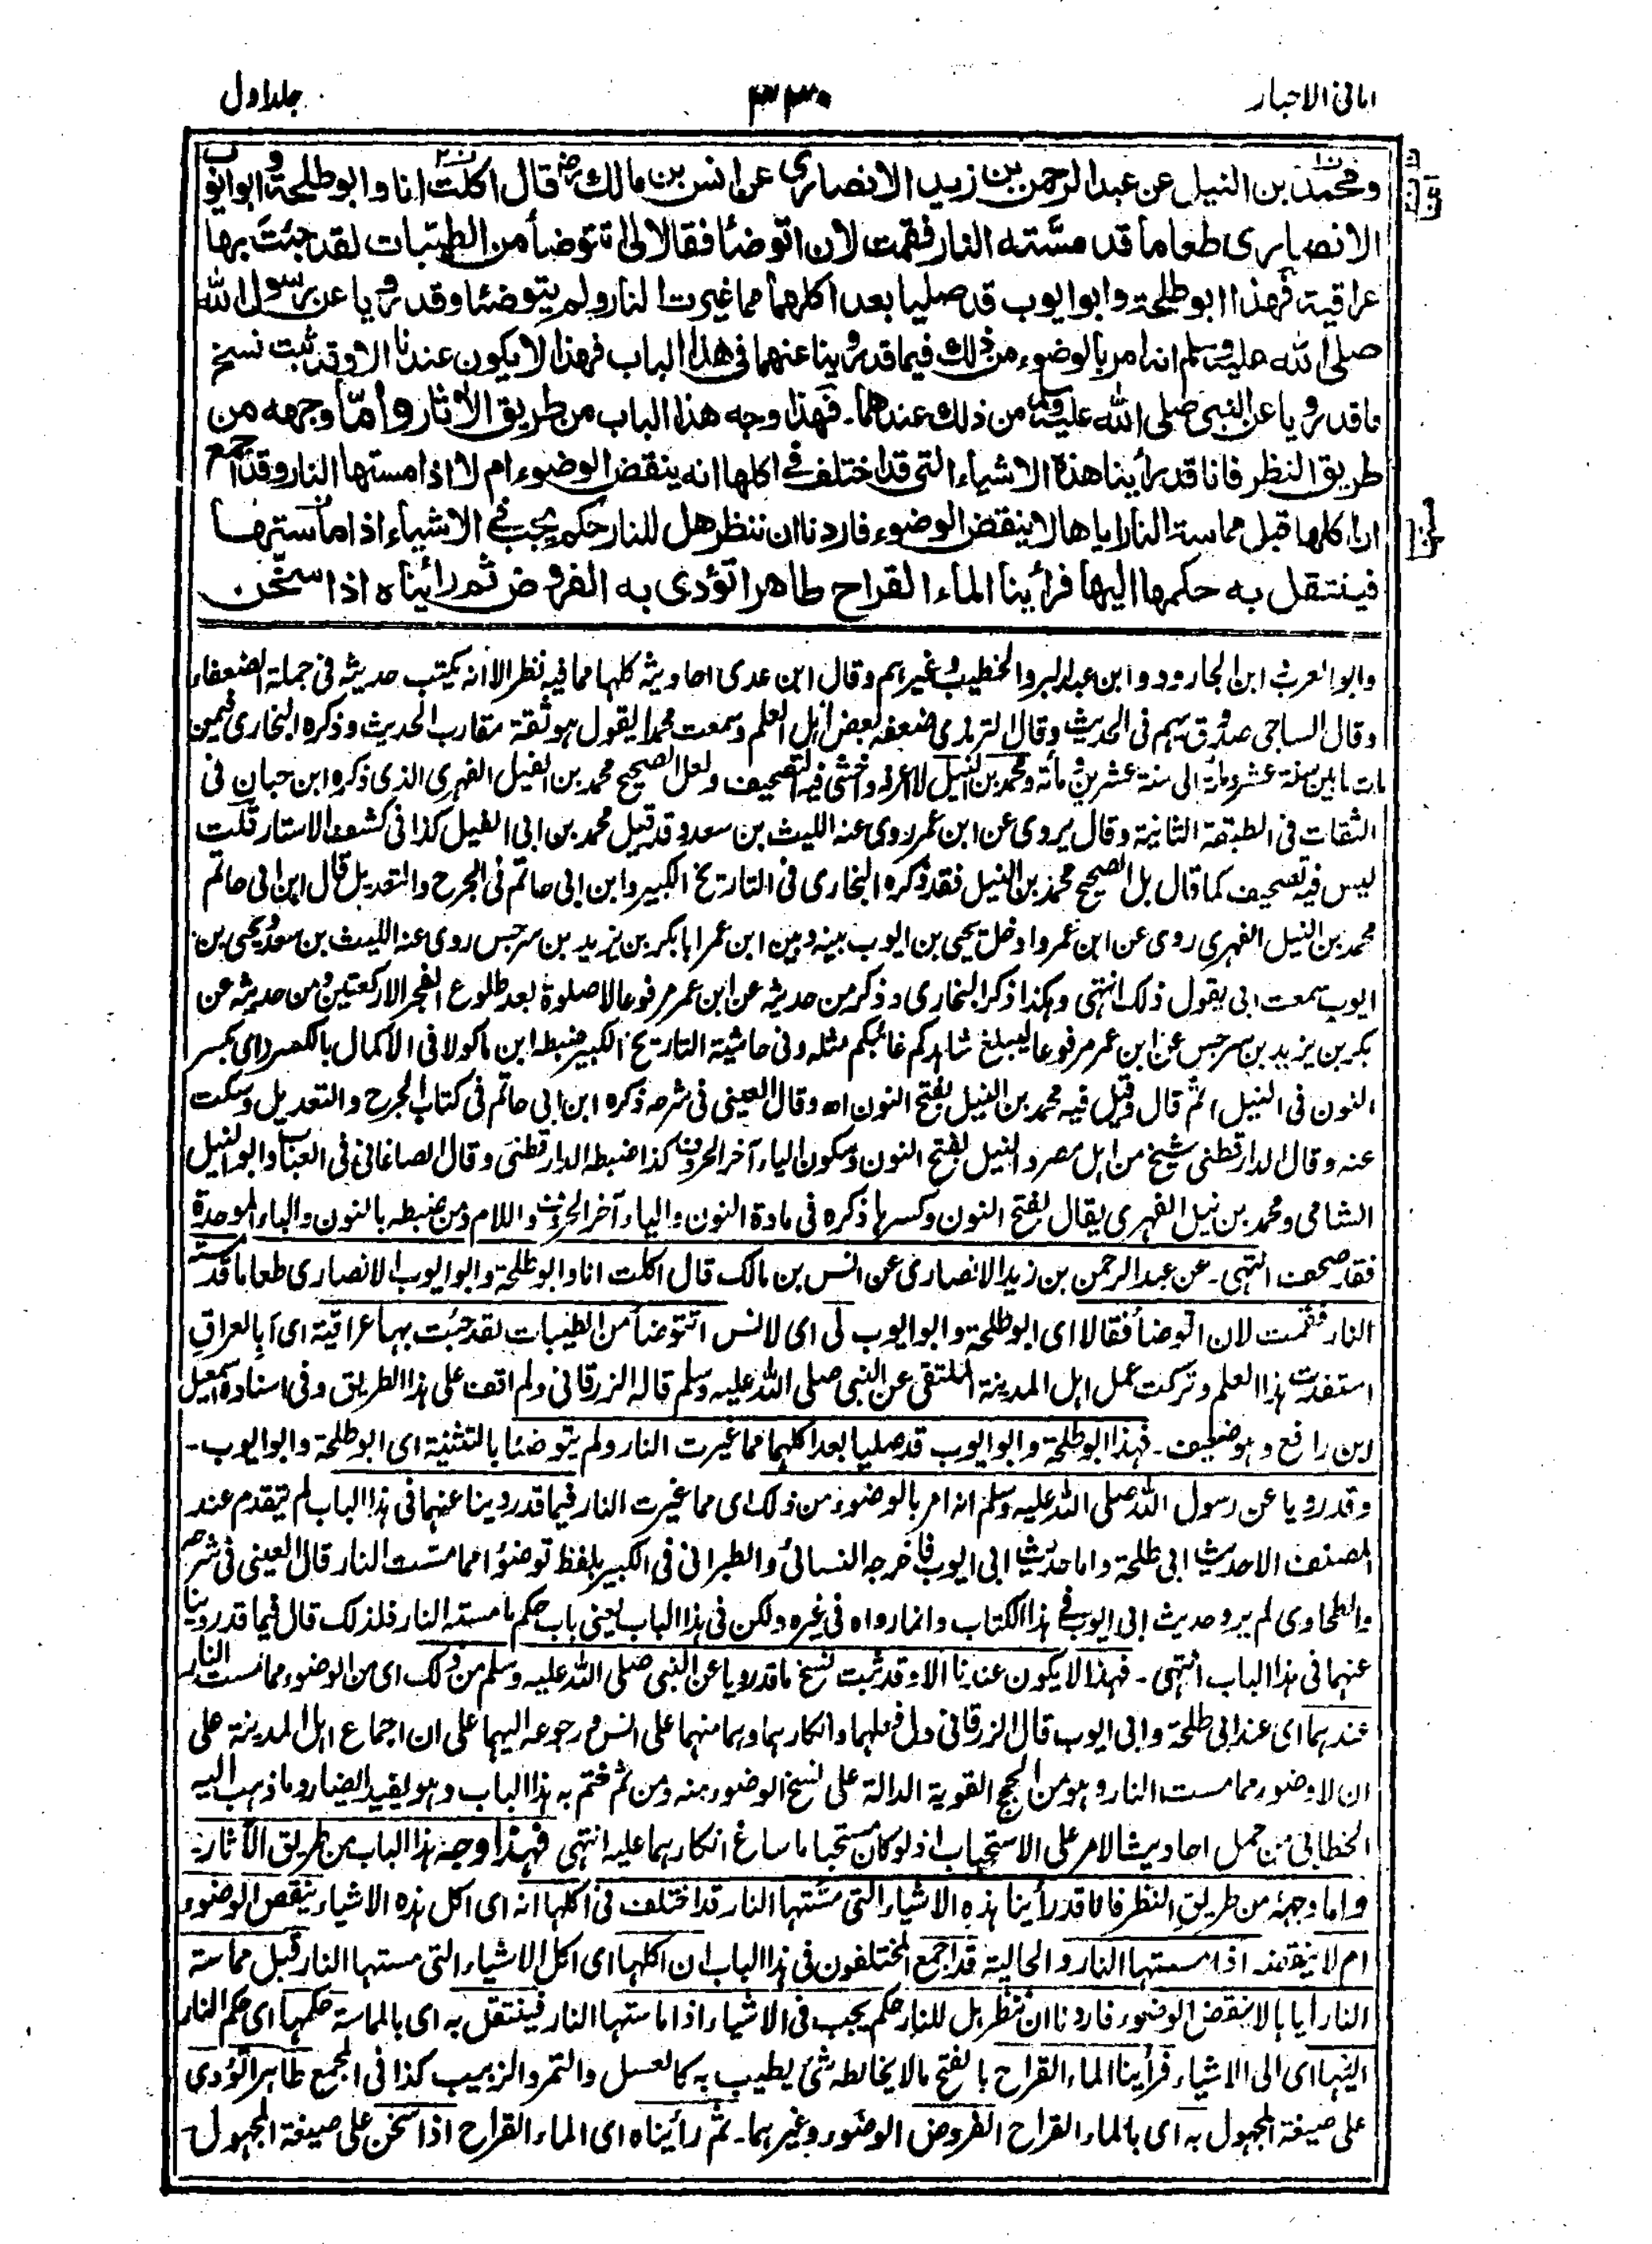 امانی الاحبار
۳۳۰
جلد اول
ومحمد بن النيل عن عبد الرحمن بن زيد الانصاري عن انس بن مالك رض قال اكلت انا وابو طلحة وابو ايوب
الانصاري طعاما قد مسته النار فقمت لان اتوضأ فقالا لي اتتوضأ من الطيبات لقد جئت بها
عراقية فهذا ابو طلحة وابو ايوب قد صليا بعد اكلهما مما غيرت النار ولم يتوضئا وقد رويا عن رسول الله
صلى الله عليه وسلم انه امر بالوضوء من ذلك فيما قد روينا عنهما في هذا الباب فهذا لا يكون عندنا الا وقد ثبت نسخ
ما قد رويا عن النبي صلى الله عليه وسلم من ذلك عندهما۔ فهذا وجه هذا الباب من طريق الآثار واما وجهه من
طريق النظر فانا قد رأينا هذه الاشياء التي قد اختلف في اكلها انه ينقض الوضوء ام لا اذا مستها النار وقد اجمع
ان اكلها قبل مماسة النار اياها لا ينقض الوضوء فاردنا ان ننظر هل للنار حكم يجب في الاشياء اذا ماستها
فينتقل به حكمها اليها فرأينا الماء القراح طاهرا تؤدى به الفروض ثم رأيناه اذا سخن
وابو العرب ابن الجارود وابن عبد البر والخطيب وغيرهم وقال ابن عدى احاديثه كلها مما فيه نظر الا انه يكتب حديثه فى جملة الضعفاء
وقال الساجى صدوق يهم فى الحديث وقال الترمذى ضعفه بعض اهل العلم وسمعت محمدا يقول هو ثقة مقارب الحديث وذكره البخارى فيمن
مات ما بين سنة عشر ومائة الى سنة عشرين ومائة ومحمد بن النيل لا اعرفه واخشى فيه التصحيف ولعل الصحيح محمد بن الفيل الفهرى الذى ذكره ابن حبان فى
الثقات فى الطبقة الثانية وقال يروى عن ابن عمر روى عنه الليث بن سعد وقد قيل محمد بن ابى الفيل كذا فى كشف الاستار قلت
ليس فيه تصحيف كما قال بل الصحيح محمد بن النيل فقد ذكره البخارى فى التاريخ الكبير وابن ابى حاتم فى الجرح والتعديل قال ابن ابى حاتم
محمد بن النيل الفهرى روى عن ابن عمر وادخل يحيى بن ايوب بينه وبين ابن عمر ابا بكر بن يزيد بن سرجس روى عنه الليث بن سعد ويحيى بن
ايوب سمعت ابى يقول ذلك انتهى وهكذا ذكر البخارى وذكر من حديثه عن ابن عمر مرفوعا لا صلوة بعد طلوع الفجر الا ركعتين ومن حديثه عن
بكر بن يزيد بن سرجس عن ابن عمر مرفوعا ليبلغ شاهدكم غائبكم مثله وفى حاشية التاريخ الكبير ضبطه ابن ماكولا فى الاكمال بالكسر (اى بكسر
النون فى النيل) ثم قال وقيل فيه محمد بن النيل بفتح النون اه وقال العينى فى شرحه ذكره ابن ابى حاتم فى كتاب الجرح والتعديل وسكت
عنه وقال الدارقطنى شيخ من اهل مصر والنيل بفتح النون وسكون الياء آخر الحروف كذا ضبطه الدارقطنى وقال الصاغانى فى العباب وابو النيل
الشامى ومحمد بن نيل الفهرى يقال بفتح النون وكسرها ذكره فى مادة النون والياء آخر الحروف واللام ومن ضبطه بالنون والباء الموحدة
فقد صحف انتهى۔ عن عبد الرحمن بن زيد الانصارى عن انس بن مالك قال اكلت انا وابو طلحة وابو ايوب الانصارى طعاما قد مسته
النار فقمت لان اتوضأ فقالا اى ابو طلحة وابو ايوب لى اى لانس اتتوضأ من الطيبات لقد جئت بها عراقية اى أبالعراق
استفدت هذا العلم وتركت عمل اهل المدينة المتلقى عن النبى صلى الله عليه وسلم قاله الزرقانى ولم اقف على هذا الطريق وفى اسناده اسمعيل
ابن رافع وهو ضعيف۔ فهذا ابو طلحة وابو ايوب قد صليا بعد اكلهما مما غيرت النار ولم يتوضئا بالتثنية اى ابو طلحة وابو ايوب۔
وقد رويا عن رسول الله صلى الله عليه وسلم انه امر بالوضوء من ذلك اى مما غيرت النار فيما قد روينا عنهما فى هذا الباب لم يتقدم عند
المصنف الا حديث ابى طلحة واما حديث ابى ايوب فاخرجه النسائى والطبرانى فى الكبير بلفظ توضؤا مما مست النار قال العينى فى شرحه
والطحاوى لم يرو حديث ابى ايوب فى هذا الكتاب وانما رواه فى غيره ولكن فى هذا الباب يعنى باب حكم ما مسته النار فلذلك قال فيما قد روينا
عنهما فى هذا الباب انتهى۔ فهذا لا يكون عندنا الا وقد ثبت نسخ ما قد رويا عن النبى صلى الله عليه وسلم من ذلك اى من الوضوء مما مست النار
عندهما اى عند ابى طلحة وابى ايوب قال الزرقانى دل فعلهما وانكارهما وهما منهما على انس ورجوعه اليهما على ان اجماع اهل المدينة على
ان لا وضوء مما مست النار وهو من الحجج القوية الدالة على نسخ الوضوء منه ومن ثم ختم به هذا الباب وهو يفيد ايضا رد ما ذهب اليه
الخطابى من حمل احاديث الامر على الاستحباب اذ لو كان مستحبا ما ساغ انكارهما عليه انتهى فهذا وجه هذا الباب من طريق الآثار۔
واما وجهه من طريق النظر فانا قد رأينا هذه الاشياء التى مستها النار قد اختلف فى اكلها انه اى اكل هذه الاشياء ينقض الوضوء
ام لا ينقضه اذا مستها النار والحالية قد اجمع المختلفون فى هذا الباب ان اكلها اى اكل الاشياء التى مستها النار قبل مماسة
النار اياها لا ينقض الوضوء فاردنا ان ننظر هل للنار حكم يجب فى الاشياء اذا ماستها النار فينتقل به اى بالمماسة حكمها اى حكم النار
اليها اى الى الاشياء فرأينا الماء القراح بالفتح ما لا يخالطه شئ يطيب به كالعسل والتمر والزبيب كذا فى المجمع طاهرا تؤدى
على صيغة المجهول به اى بالماء القراح الفروض الوضوء وغيرهما۔ ثم رأيناه اى الماء القراح اذا سخن على صيغة المجهول۔